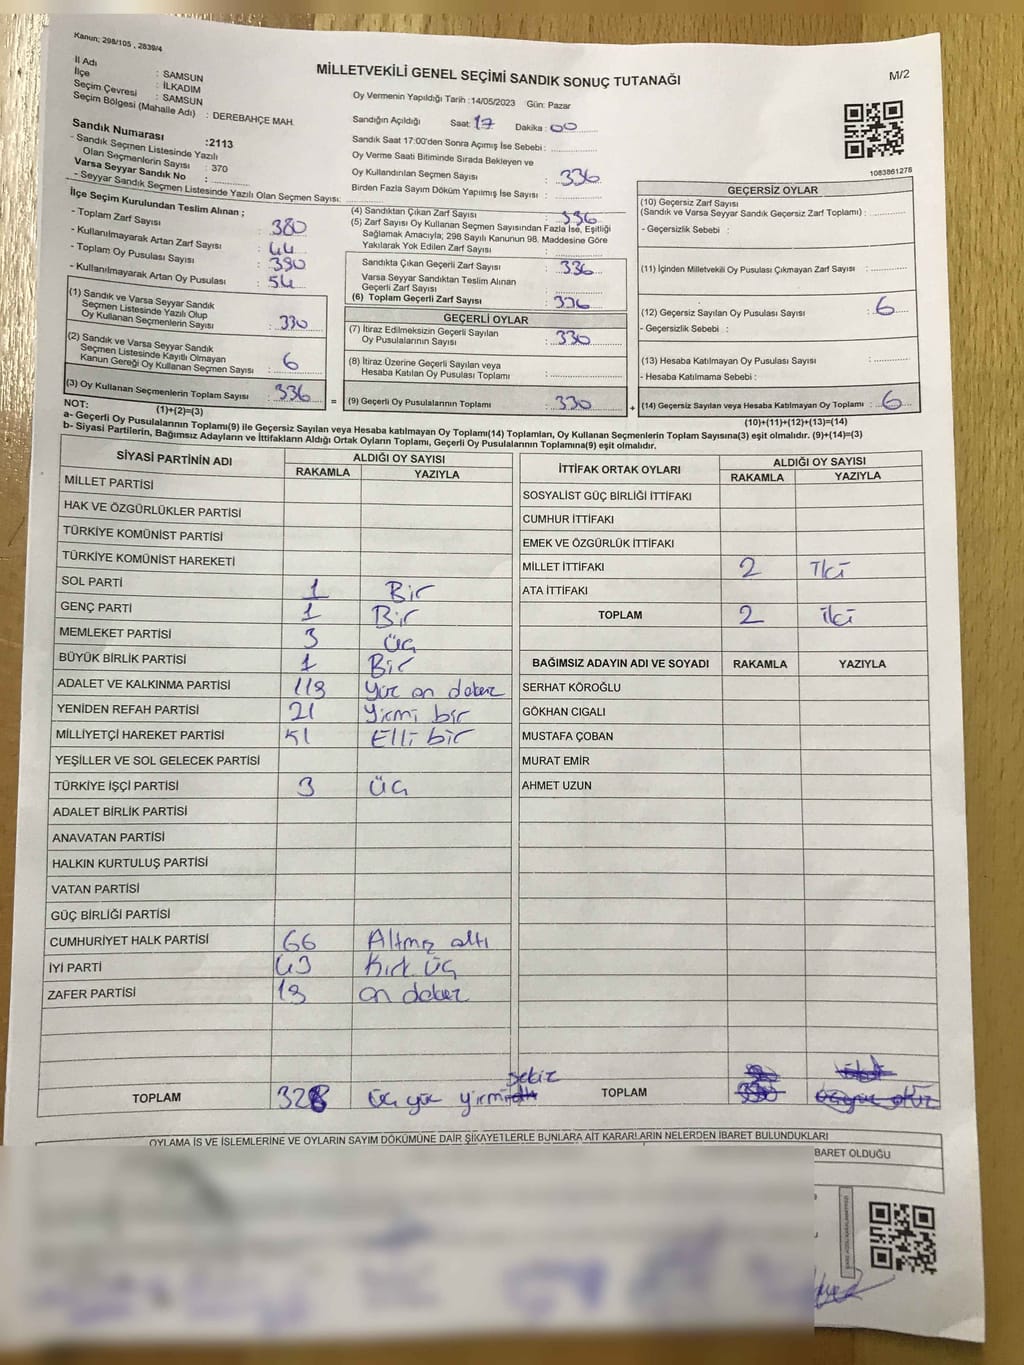 Kanun; 298/105 , 2839/4
MİLLETVEKİLİ GENEL SEÇİMİ SANDIK SONUÇ TUTANAĞI
M/2
İl Adı : SAMSUN
İlçe : İLKADIM
Seçim Çevresi : SAMSUN
Seçim Bölgesi (Mahalle Adı) : DEREBAHÇE MAH.
Sandık Numarası :2113
- Sandık Seçmen Listesinde Yazılı
Olan Seçmenlerin Sayısı : 370
Varsa Seyyar Sandık No :
- Seyyar Sandık Seçmen Listesinde Yazılı Olan Seçmen Sayısı:
Oy Vermenin Yapıldığı Tarih :14/05/2023 Gün: Pazar
Sandığın Açıldığı Saat: 17 Dakika : 00
Sandık Saat 17:00'den Sonra Açımış İse Sebebi :
Oy Verme Saati Bitiminde Sırada Bekleyen ve
Oy Kullandırılan Seçmen Sayısı : 336
Birden Fazla Sayım Döküm Yapılmış İse Sayısı :
1083861278
İlçe Seçim Kurulundan Teslim Alınan ;
- Toplam Zarf Sayısı : 380
- Kullanılmayarak Artan Zarf Sayısı : 44
- Toplam Oy Pusulası Sayısı : 390
- Kullanılmayarak Artan Oy Pusulası : 54
(1) Sandık ve Varsa Seyyar Sandık
Seçmen Listesinde Yazılı Olup
Oy Kullanan Seçmenlerin Sayısı : 330
(2) Sandık ve Varsa Seyyar Sandık
Seçmen Listesinde Kayıtlı Olmayan
Kanun Gereği Oy Kullanan Seçmen Sayısı : 6
(3) Oy Kullanan Seçmenlerin Toplam Sayısı : 336 =
(4) Sandıktan Çıkan Zarf Sayısı : 336
(5) Zarf Sayısı Oy Kullanan Seçmen Sayısından Fazla İse, Eşitliği
Sağlamak Amacıyla; 298 Sayılı Kanunun 98. Maddesine Göre
Yakılarak Yok Edilen Zarf Sayısı :
Sandıkta Çıkan Geçerli Zarf Sayısı : 336
Varsa Seyyar Sandıktan Teslim Alınan
Geçerli Zarf Sayısı :
(6) Toplam Geçerli Zarf Sayısı : 336
GEÇERLİ OYLAR
(7) İtiraz Edilmeksizin Geçerli Sayılan
Oy Pusulalarının Sayısı : 330
(8) İtiraz Üzerine Geçerli Sayılan veya
Hesaba Katılan Oy Pusulası Toplamı :
(9) Geçerli Oy Pusulalarının Toplamı : 330 +
GEÇERSİZ OYLAR
(10) Geçersiz Zarf Sayısı
(Sandık ve Varsa Seyyar Sandık Geçersiz Zarf Toplamı) :
- Geçersizlik Sebebi :
(11) İçinden Milletvekili Oy Pusulası Çıkmayan Zarf Sayısı :
(12) Geçersiz Sayılan Oy Pusulası Sayısı : 6
- Geçersizlik Sebebi :
(13) Hesaba Katılmayan Oy Pusulası Sayısı :
- Hesaba Katılmama Sebebi :
(14) Geçersiz Sayılan veya Hesaba Katılmayan Oy Toplamı : 6
NOT: (1)+(2)=(3) (10)+(11)+(12)+(13)=(14)
a- Geçerli Oy Pusulalarının Toplamı(9) ile Geçersiz Sayılan veya Hesaba katılmayan Oy Toplamı(14) Toplamları, Oy Kullanan Seçmenlerin Toplam Sayısına(3) eşit olmalıdır. (9)+(14)=(3)
b- Siyasi Partilerin, Bağımsız Adayların ve İttifakların Aldığı Ortak Oyların Toplamı, Geçerli Oy Pusulalarının Toplamına(9) eşit olmalıdır.
SİYASİ PARTİNİN ADI ALDIĞI OY SAYISI
RAKAMLA YAZIYLA
MİLLET PARTİSİ
HAK VE ÖZGÜRLÜKLER PARTİSİ
TÜRKİYE KOMÜNİST PARTİSİ
TÜRKİYE KOMÜNİST HAREKETİ
SOL PARTİ 1 Bir
GENÇ PARTİ 1 Bir
MEMLEKET PARTİSİ 3 üç
BÜYÜK BİRLİK PARTİSİ 1 Bir
ADALET VE KALKINMA PARTİSİ 118 yüz on sekiz
YENİDEN REFAH PARTİSİ 21 Yirmi bir
MİLLİYETÇİ HAREKET PARTİSİ 51 Elli bir
YEŞİLLER VE SOL GELECEK PARTİSİ
TÜRKİYE İŞÇİ PARTİSİ 3 üç
ADALET BİRLİK PARTİSİ
ANAVATAN PARTİSİ
HALKIN KURTULUŞ PARTİSİ
VATAN PARTİSİ
GÜÇ BİRLİĞİ PARTİSİ
CUMHURİYET HALK PARTİSİ 66 Altmış altı
İYİ PARTİ 43 Kırk üç
ZAFER PARTİSİ 18 on sekiz
TOPLAM 328 üç yüz yirmi sekiz
İTTİFAK ORTAK OYLARI ALDIĞI OY SAYISI
RAKAMLA YAZIYLA
SOSYALİST GÜÇ BİRLİĞİ İTTİFAKI
CUMHUR İTTİFAKI
EMEK VE ÖZGÜRLÜK İTTİFAKI
MİLLET İTTİFAKI 2 İki
ATA İTTİFAKI
TOPLAM 2 iki
BAĞIMSIZ ADAYIN ADI VE SOYADI RAKAMLA YAZIYLA
SERHAT KÖROĞLU
GÖKHAN CIGALI
MUSTAFA ÇOBAN
MURAT EMİR
AHMET UZUN
TOPLAM
OYLAMA İŞ VE İŞLEMLERİNE VE OYLARIN SAYIM DÖKÜMÜNE DAİR ŞİKAYETLERLE BUNLARA AİT KARARLARIN NELERDEN İBARET BULUNDUKLARI
BARET OLDUĞU